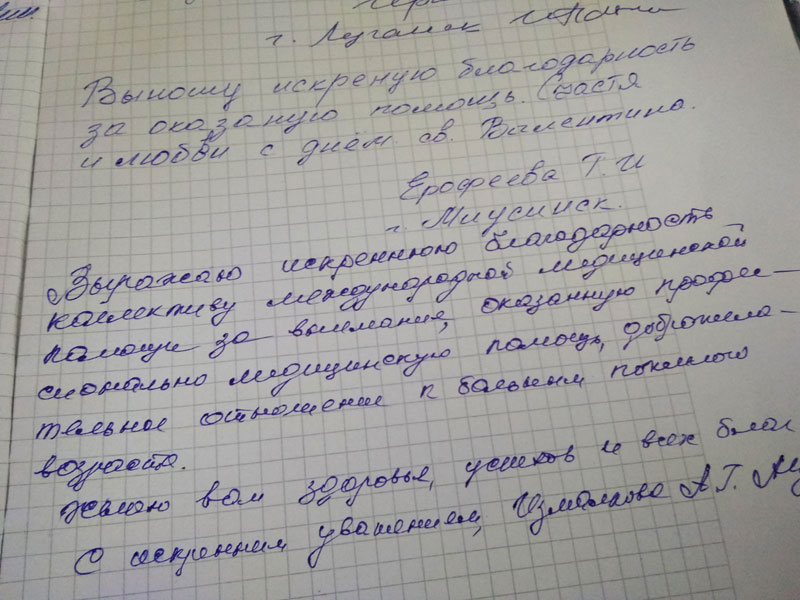 г. Луганск
Выношу искреную благодарность
за оказаную помощь. Счастя
и любви с днём св. Валентина.
Ерофеева Т. И
г. Миусинск.
Выражаю искреннюю благодарность
коллективу международной медицинской
помощи за внимание, оказанную профес-
сионально медицинскую помощь, доброжела-
тельное отношение к больным пожилого
возраста.
Желаю вам здоровья, успехов и всех благ
С искренним уважением, Измалкова А. Г.